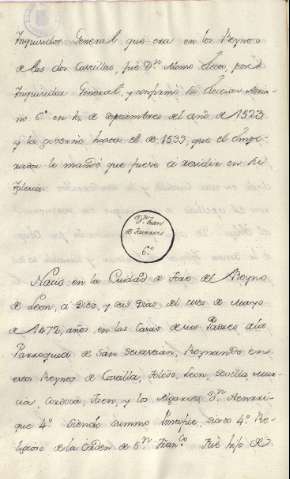 Inquisidor General que era en los Reynos
de las dos Castillas, fué Dⁿ. Alonso
Inquisidor General, y confirmó la eleccion
6º en de septiembre del año de 1523
y la governó hasta el de 1533, que el Empe-
rador le mandó que fuese á residir en su
Iglesia
Dⁿ. Fran
6º
Nació en la Ciudad de Toro del Reyno
de Leon, á Diez, y seis Dias del mes de Mayo
de 1472, años en las Casas de sus Padres
Parroquia de San Sevastian, Reynando en es-
tos Reynos de Castilla, Toledo, Leon, Sevilla, Mur-
cia, Cordova Jaen, y los Algarves Dⁿ. Henrri-
que 4º Siendo summo Pontifice, Sixto 4º Re-
ligioso de la Orden de Sⁿ. Franᶜᵒ. Fué hijo de